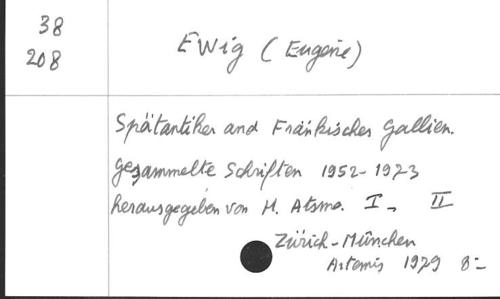 38
208
EWig (Eugene)
Spätantikes and Fränkisches Gallien.
gesammelte Schriften 1952-1973
herausgegeben von H. Atsma. I - II
Zürich-München
Artemis 1979 8=